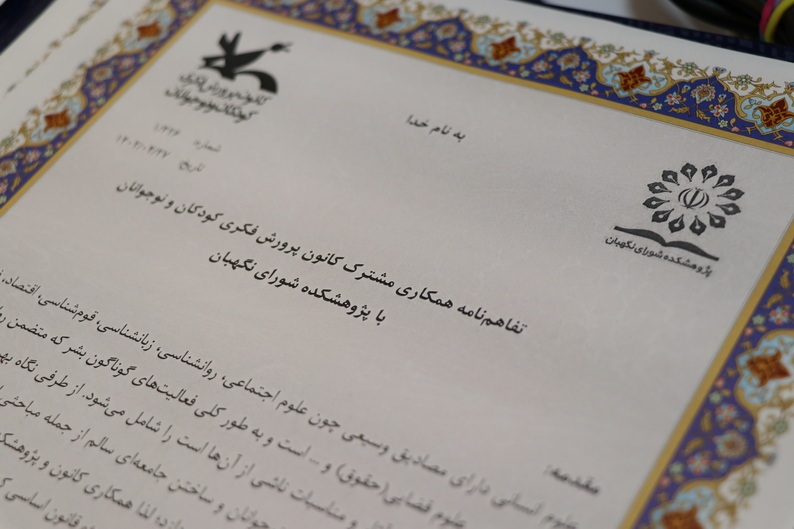 به نام خدا
کانون پرورش فکری
کودکان و نوجوانان
شماره: ۱/۴۲۶
تاریخ: ۱۴۰۲/۰۲/۲۷
پژوهشکده شورای نگهبان
تفاهم‌نامه همکاری مشترک کانون پرورش فکری کودکان و نوجوانان
با پژوهشکده شورای نگهبان
مقدمه:
علوم انسانی دارای مصادیق وسیعی چون علوم اجتماعی، روانشناسی، زبانشناسی، قوم‌شناسی، اقتصاد،
علوم قضایی(حقوق) و ... است و به طور کلی فعالیت‌های گوناگون بشر که متضمن
و مناسبات ناشی از آن‌ها است را شامل می‌شود. از طرفی نگاه
جوانان و ساختن جامعه‌ای سالم از جمله مباحثی
لذا همکاری کانون و
قانون اساسی